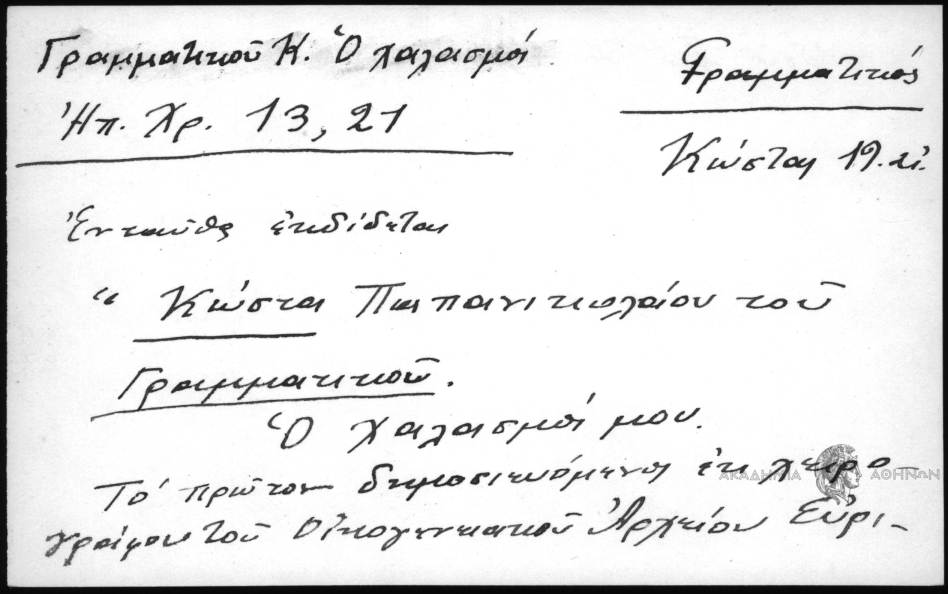 Γραμματικοῦ Κ. Ὁ χαλασμός
Ἠπ. Χρ. 13, 21
Γραμματικός
Κώστας 19. αἰ.
Ἐνταῦθα ἐκδίδεται
" Κώστα Παπανικολάου τοῦ
Γραμματικοῦ.
Ὁ χαλασμός μου.
Τὸ πρῶτον δημοσιευόμενος ἐκ χειρο-
γράφου τοῦ Οἰκογενειακοῦ Ἀρχείου Εὐρι-
ΑΚΑΔΗΜΙΑ ΑΘΗΝΩΝ